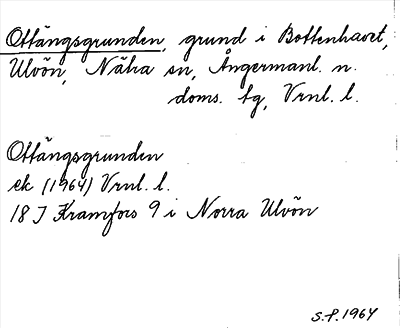 Ottängsgrunden, grund i Bottenhavet,
Ulvön, Nätra sn, Ångermanl. n.
doms. tg, Vrnl. l.
Ottängsgrunden
ek (1964) Vrnl. l.
18 J Kramfors 9 i Norra Ulvön
S.P. 1964